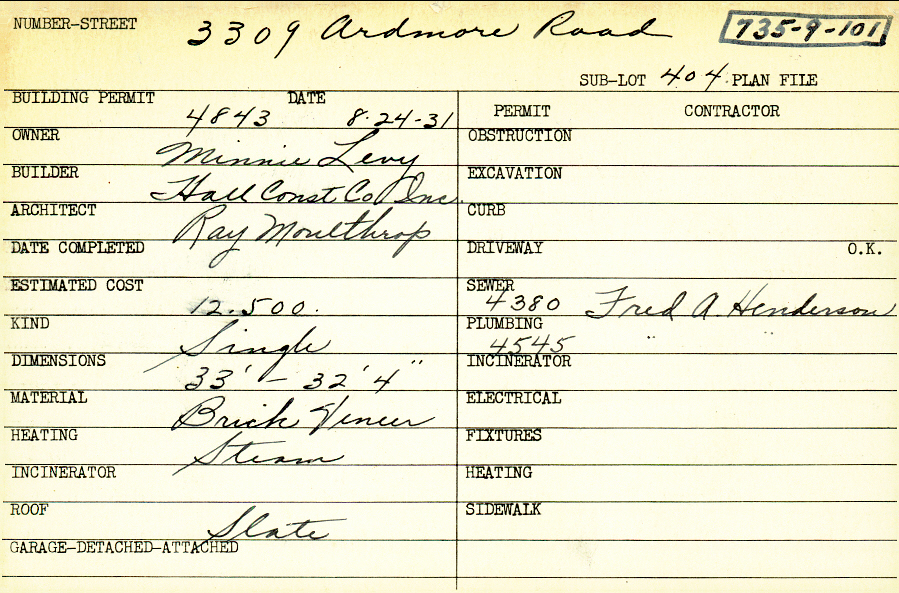 NUMBER-STREET 3309 Ardmore Road 735-9-101
SUB-LOT 404 PLAN FILE
BUILDING PERMIT 4843 DATE 8-24-31
PERMIT CONTRACTOR
OWNER Minnie Levy
OBSTRUCTION
BUILDER Hall Const Co Inc.
EXCAVATION
ARCHITECT Ray Moulthrop
CURB
DATE COMPLETED
DRIVEWAY O.K.
ESTIMATED COST 12.500.
SEWER 4380 Fred A. Henderson
KIND Single
PLUMBING 4545 "
DIMENSIONS 33' - 32'4"
INCINERATOR
MATERIAL Brick Veneer
ELECTRICAL
HEATING Steam
FIXTURES
INCINERATOR
HEATING
ROOF Slate
SIDEWALK
GARAGE-DETACHED-ATTACHED